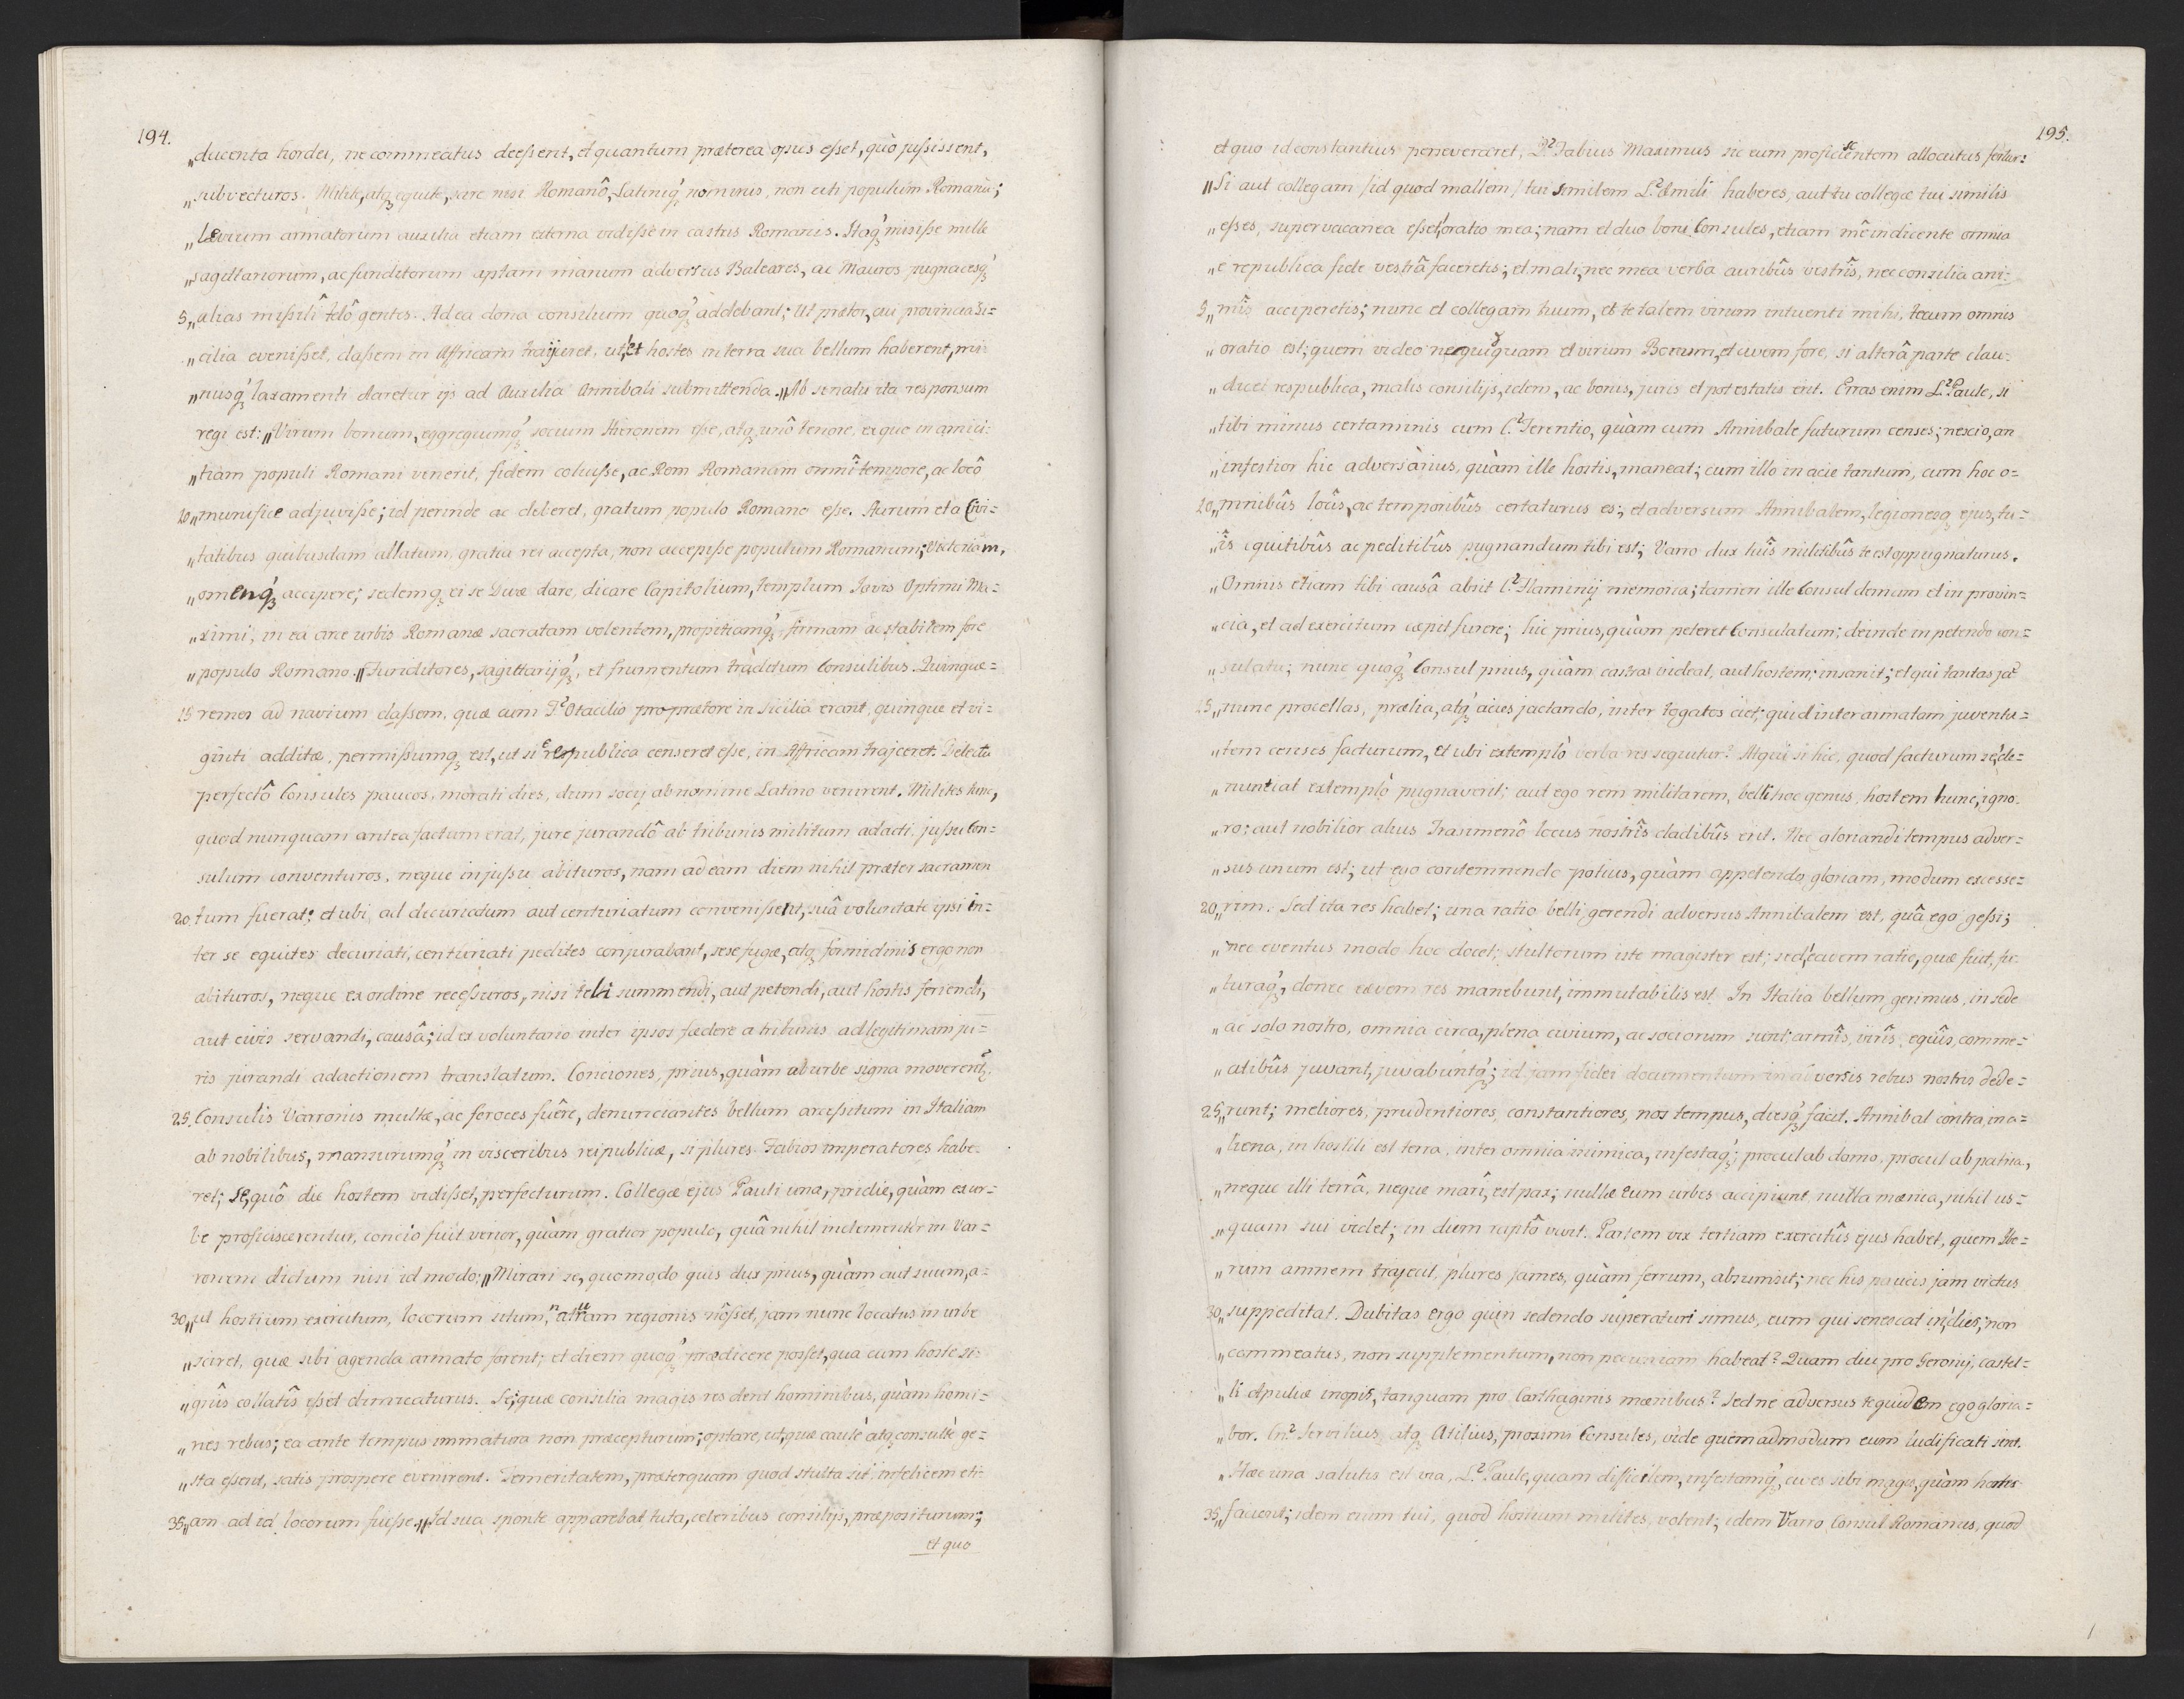 194.
„ducenta hordei, ne commeatus deessent, et quantum præterea opus esset, quò jussissent,
„subvecturos. Milite, atq3 equite, scire nisi Romanô, Latiniq3 nominis, non uti populum Romanū;
„levium armatorum auxilia etiam externa vidisse in castris Romanis. Itaq3 misisse mille
„sagittariorum, ac funditorum aptam manum adversus Baleares, ac Mauros pugnacesq3
5„alias missili telô gentes. Ad ea dona consilium quoq3 addebant; Ut prætor, cui provincia Si=
„cilia evenisset, classem in Affricam traijceret, ut et hostes in terra sua bellum haberent, mi=
„nusq3 laxamenti daretur ijs ad Auxilia Annibali submittenda. „Ab senatu ita responsum
regi est: „Virum bonum, eggregiumq3 socium Hieronem esse, atq3 unô tenore, ex quo in amici=
„tiam populi Romani venerit, fidem coluisse, ac Rem Romanam omnî tempore, ac locô
10„munifice adjuvisse; id perinde ac deberet, gratum populo Romano esse. Aurum et a Civi=
„tatibus quibusdam allatum, gratia rei accepta, non accepisse populum Romanum; Victoriam,
„omenq3 accipere; sedemq3 ei se Divæ dare, dicare Capitolium, templum Jovis Optimi Ma=
„ximi; in ea arce urbis Romanæ sacratam volentem, propitiamq3 firmam ac stabilem fore
„populo Romano. „Funditores, sagittarijq3, et frumentum traditum Consulibus. Quinque=
15 remes ad navium classem, quæ cum T. Otacilio proprætore in Sicilia erant, quinque et vi=
ginti additæ, permissumq3 est, ut si e republica censeret esse, in Affricam trajceret. Delectu
perfectô Consules paucos, morati dies, dum socij ab nomine Latino venirent. Milites tunc,
quod nunquam antea factum erat, jure jurandô ab tribunis militum adacti, jussu Con=
sulum conventuros, neque injussu abituros, nam ad eam diem nihil præter sacramen
20 tum fuerat; et ubi ad decuriatum aut centuriatum convenissent, suâ voluntate ipsi in=
ter se equites decuriati, centuriati pedites conjurabant, sese fugæ, atq3 formidinis ergo non
abituros, neque ex ordine recessuros, nisi teli summendi, aut petendi, aut hostis feriendi,
aut civis servandi, causâ; id ex voluntario inter ipsos fœdere a tribunis ad legitimam ju=
ris jurandi adactionem translatum. Conciones, prius, quàm ab urbe signa moverent,
25. Consulis Varronis multæ, ac feroces fuêre, denunciantes bellum arcessitum in Italiam
ab nobilibus, mansurumq3 in visceribus reipublicæ, si plures Fabios imperatores habe=
ret; Se, quô die hostem vidisset, perfecturum. Collegæ ejus Pauli una, pridie, quàm ex ur=
be proficisceventur, concio fuit verior, quàm gratior populo, quâ nihil inclementer in Var=
ronem dictum nisi id modo: „Mirari se, quomodo quis dux prius, quàm aut suum, a=
30„ut hostium exercitum, locorum situm, naturam regionis nôsset, jam nunc locatus in urbe
„sciret, quæ sibi agenda armato forent; et diem quoq3 prædicere posset, qua cum hoste si=
„gnîs collatîs esset dimicaturus. Se, quæ consilia magis res dent hominibus, quàm homi=
„nes rebus; ea ante tempus immatura non præcepturum; optare, ut, quæ cautè atq3 consultè ge=
„sta essent, satis prospere evenirent. Temeritatem, præterquam quod stulta sit, infelicem eti=
35„am ad id locorum fuisse. „Id sua sponte apparebat tuta, celeribus consilijs, præpositurum;
et quo
195.
et quo id constantius perseveraret, Q. Fabius Maximus sic eum proficiscentem allocutus fertur:
„Si aut collegam /id quod mallem/ tui similem L. Æmili haberes, aut tu collegæ tui similis
„esses, supervacanea esset oratio mea; nam et duo boni Consules, etiam mê indicente omnia
„e republica fide vestrâ faceretis; et mali, nec mea verba auribûs vestrîs, nec consilia ani=
5„mîs acciperetis; nunc et collegam tuum, et te talem virum intuenti mihi, tecum omnis
„oratio est; quem video nequicquam et virum Bonum, et civem fore, si alterâ parte clau=
„dicet respublica, malis consilijs, idem, ac bonis, juris et potestatis erit. Erras enim L. Paule, si
„tibi minus certaminis cum C. Terentio, quàm cum Annibale futurum censes; nescio, an
„infestior hic adversarius, quàm ille hostis, maneat; cum illo in acie tantum, cum hoc o=
10„mnibûs locîs, ac temporibûs certaturus es; et adversum Annibalem, legionesq3 ejus, tu=
„îs equitibûs ac peditibûs pugnandum tibi est; Varro dux tuîs militibûs te est oppugnaturus.
„Ominis etiam tibi causâ absit C. Flaminij memoria; tamen ille Consul demum et in provin=
„cia, et ad exercitum cæpit furere; hic prius, quàm peteret Consulatum; deinde in petendo con=
„sulatu; nunc quoq3 Consul prius, quàm castra videat, aut hostem; insanit; et qui tantas jā
15„nunc procellas, prælia, atq3 acies jactando, inter togatos ciet; quid inter armatam juventu=
„tem censes facturum, et ubi extemplò verba res sequitur? Atqui si hic, quod facturum se de=
„nuntiat extemplò pugnaverit; aut ego rem militarem, belli hoc genus, hostem hunc, igno=
„ro; aut nobilior alius Trasimenô locus nostrîs cladibûs erit. Nec gloriandi tempus adver=
„sus unum est; ut ego contemnendo potius, quàm appetendo gloriam, modum excesse=
20„rim. Sed ita res habet; una ratio belli gerendi adversus Annibalem est, quâ ego gessi;
„nec eventus modo hoc docet; stultorum iste magister est; sed, eadem ratio, quæ fuit, fu=
„turaq3, donec eædem res manebunt, immutabilis est. In Italia bellum gerimus, in sede
„ac solo nostro, omnia circa, plena civium, ac sociorum sunt; armîs, virîs, equîs, comme=
„atibûs juvant, juvabuntq3; id jam fidei documentum in adversis rebus nostris dede=
25„runt; meliores, prudentiores, constantiores, nos tempus, diesq3 facit. Annibal contra, in a=
„liena, in hostili est terra, inter omnia inimica, infestaq3; procul ab domo, procul ab patria,
„neque illi terrâ, neque marî, est pax; nullæ eum urbes accipiunt, nulla mænia, nihil us=
„quam sui videt; in diem raptô vivit. Partem vix tertiam exercitûs ejus habet, quem Ibe=
„rum amnem trajecit, plures fames, quàm ferrum, absumsit; nec his paucis jam victus
30„suppeditat. Dubitas ergo quin sedendo superaturi simus, eum qui senescat in dies; non
„commeatus, non supplementum, non pecuniam habeat? Quam diu pro Geronij, castel=
„li Apuliæ inopis, tanquam pro Carthaginis mænibus? Sed ne adversus te quidem ego gloria=
„bor. Cn. Servilius, atq3 Atilius, proximi Consules, vide quemadmodum eum ludificati sint.
„Hæc una salutis est via, L. Paule, quam difficilem, infestamq3, cives tibi magis, quàm hostes
35„facient; idem enim tui, quod hostium milites, volent; idem Varro Consul Romanus, quod